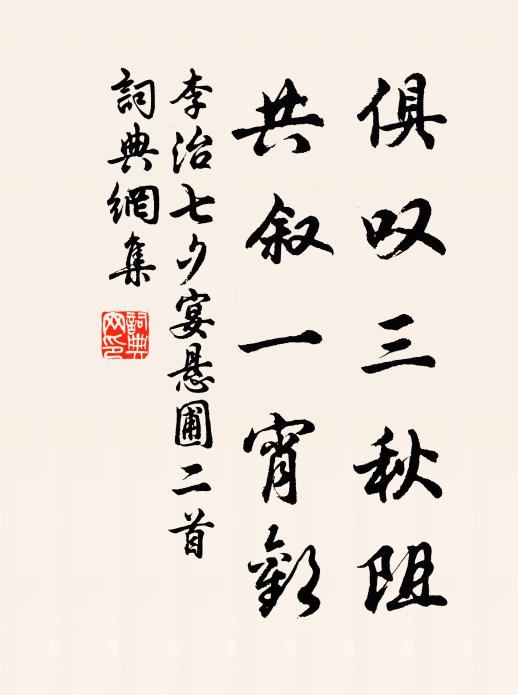 俱叹三秋阻
共叙一宵歡
李治七夕宴悬圃二首
詞典網集
詞典網印